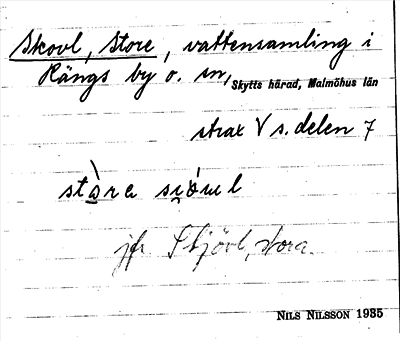 Skovl, Store, vattensamling i
Rängs by o. sn, Skytts härad, Malmöhus län
strax V s. delen 7
stòra
jfr Skjövl, stora.
NILS NILSSON 1935